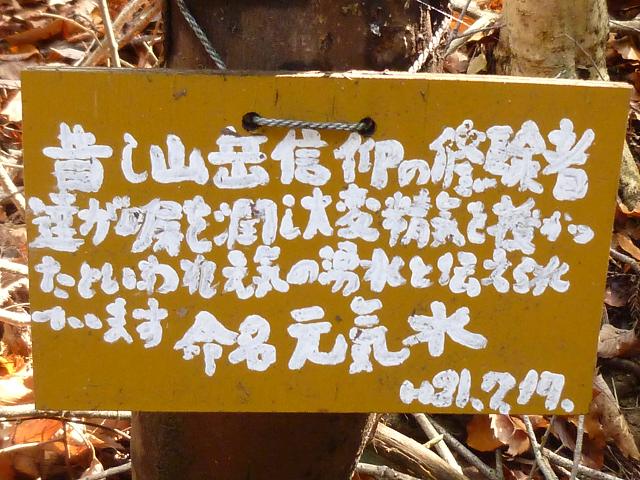 昔し山岳信仰の修験者
達が喉を潤し大変精気を授かっ
たといわれ元気の湯水と伝えられ
ています 命名 元気水
H21.7.17.